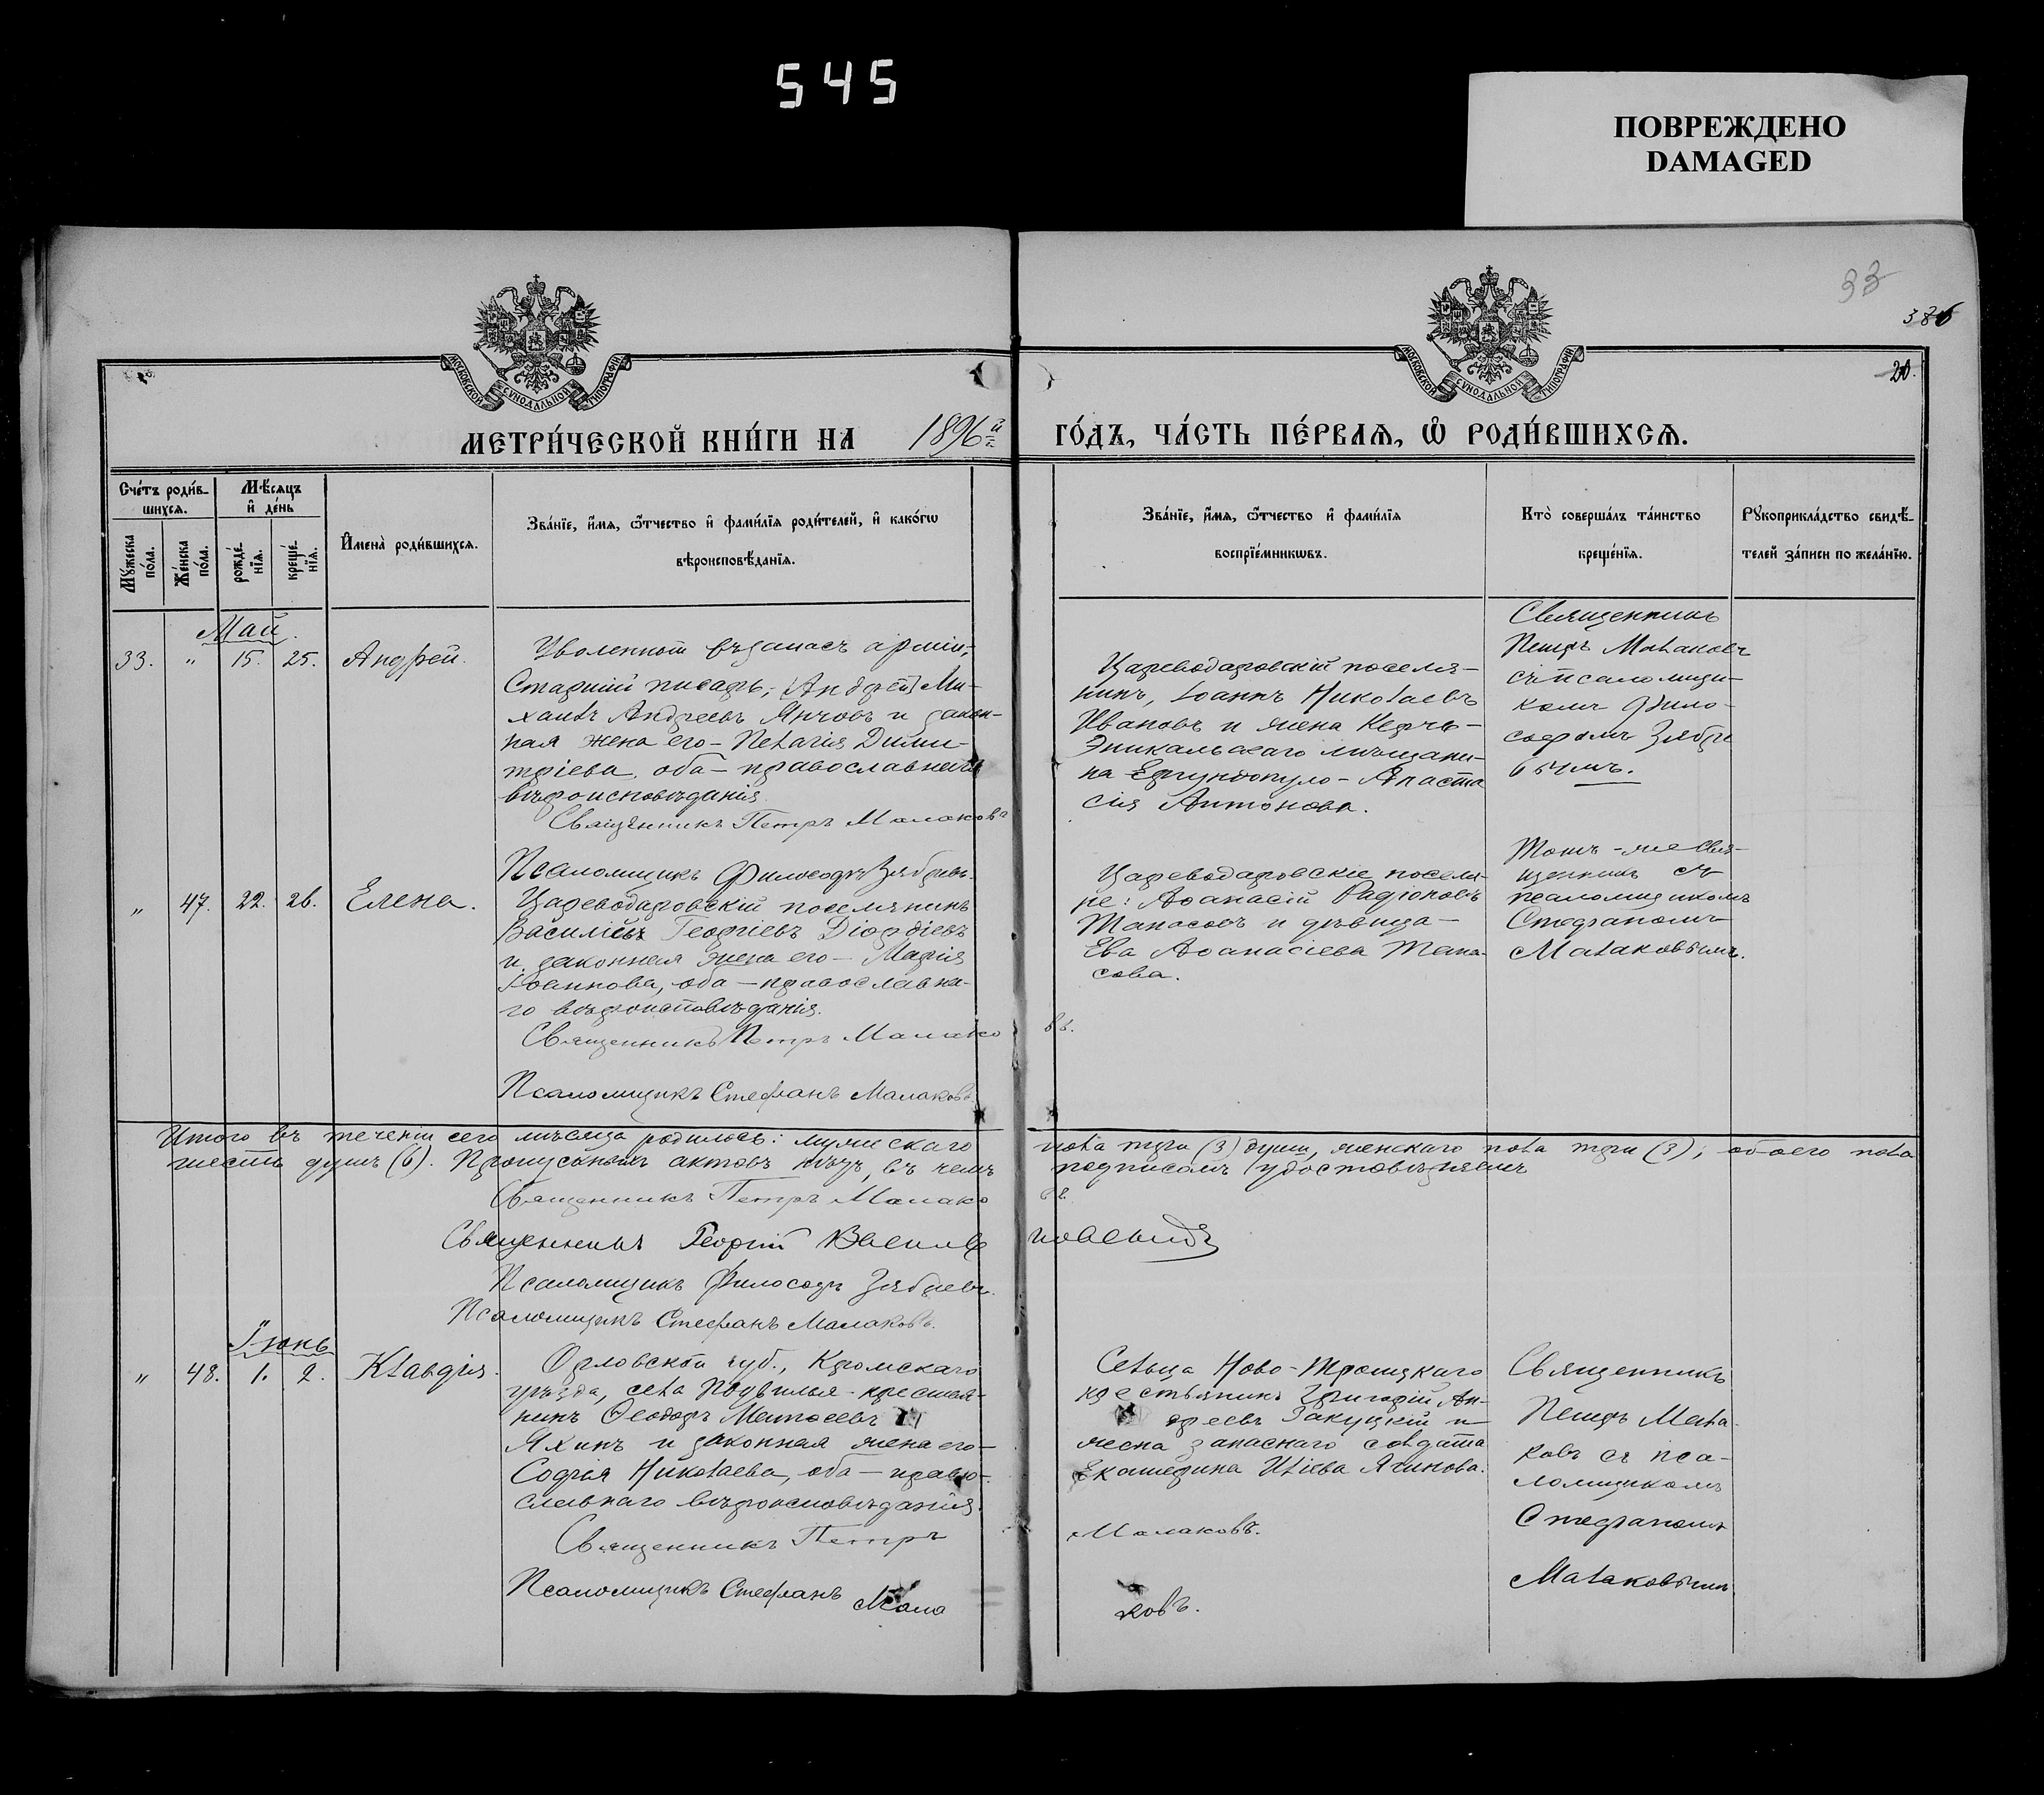 545
ПОВРЕЖДЕНО
DAMAGED
33
386
20.
МОСКОВСКОЙ СѴНОДАЛЬНОЙ ТИПОГРАФІИ
МОСКОВСКОЙ СѴНОДАЛЬНОЙ ТИПОГРАФІИ
МЕТРИ́ЧЕСКОЙ КНИ́ГИ НА 1896й г.
ГО́ДЪ, ЧА́СТЬ ПЕ́РВАѦ, Ѽ РОДИ́ВШИХСѦ.
Сче́тъ роди́в-
шихся.
Мѣ́сяцъ
и҆ де́нь
Мꙋ́жеска по́ла.
Же́нска по́ла.
рожде́-нїя.
креще́-нїя.
И҆мена̀ роди́вшихся.
Зва́нїе, и҆́мя, ѻ҆́тчество и҆ фами́лїя роди́телей, и҆ како́гѡ
вѣроисповѣ́данїя.
Зва́нїе, и҆́мя, ѻ҆́тчество и҆ фами́лїя
воспрїе́мникѡвъ.
Кто̀ соверша́лъ та́инство
креще́нїя.
Рꙋкоприкла́дство свидѣ́-
телей за́писи по жела́нїю.
Май.
33. „ 15. 25. Андрей.
Уволенный въ запасъ арміи,
Старшій писарь, (Андрей) Ми-
хаилъ Андреевъ Янчовъ и закон-
ная жена его – Пелагія Дими-
тріева, оба – православнаго
вѣроисповѣданія
Священникъ Петръ Малаковъ
Псаломщикъ Философъ Зябревъ.
Цареводаровскій поселя-
нинъ, Іоаннъ Николаевъ
Ивановъ и жена Керчь-
Эникальскаго мѣщани-
на – Анаста
сія Антонова.
Священникъ
Петръ Малаковъ
съ псаломщи-
комъ Фило-
софомъ Зябре
вымъ.
„ 47. 22. 26. Елена.
Цареводаровскій поселянинъ
Василій Георгіевъ Діордіевъ
и законная жена его – Марія
Іоаннова, оба – православна-
го вѣроисповѣданія.
Священникъ Петръ Малако
въ.
Псаломщикъ Стефанъ Малаковъ
Цареводаровскіе поселя-
не: Аѳанасій Радіоновъ
Танасовъ и дѣвица –
Ева Аѳанасіева Тана-
сова.
Тотъ-же свя-
щенникъ съ
псаломщикомъ
Стефаномъ
Малаковымъ.
Итого въ теченіи сего мѣсяца родилось: мужескаго пола три (3) души, женскаго пола три (3); обоего пола
шесть душъ (6). Пропускныхъ актовъ нѣтъ, въ чемъ подписомъ удостовѣряемъ
Священникъ Петръ Малако
въ.
Священникъ Георгій
Псаломщикъ Философъ Зябревъ.
Псаломщикъ Стефанъ Малаковъ.
Іюнь
„ 48. 1. 2. Клавдія.
Орловской губ., Кромскаго
уѣзда, села Подвилья – крестья-
нинъ Ѳеодоръ Моисеевъ
Яхинъ и законная жена его –
Софія Николаева, оба – право-
славнаго вѣроисповѣданія.
Священникъ Петръ
Малаковъ.
Псаломщикъ Стефанъ Мала
ковъ.
Сельца Ново-Троицкаго
крестьянинъ Григорій Ан-
дреевъ Закуцкій и
жена запаснаго солдата
Екатерина Иліева Ячинова.
Священникъ
Петръ Мала-
ковъ съ пса-
ломщикомъ
Стефаномъ
Малаковымъ